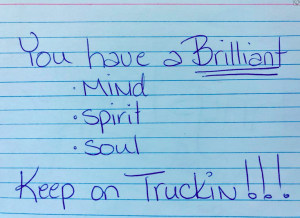 You have a Brilliant
· Mind
· Spirit
· Soul
Keep on Truckin!!!